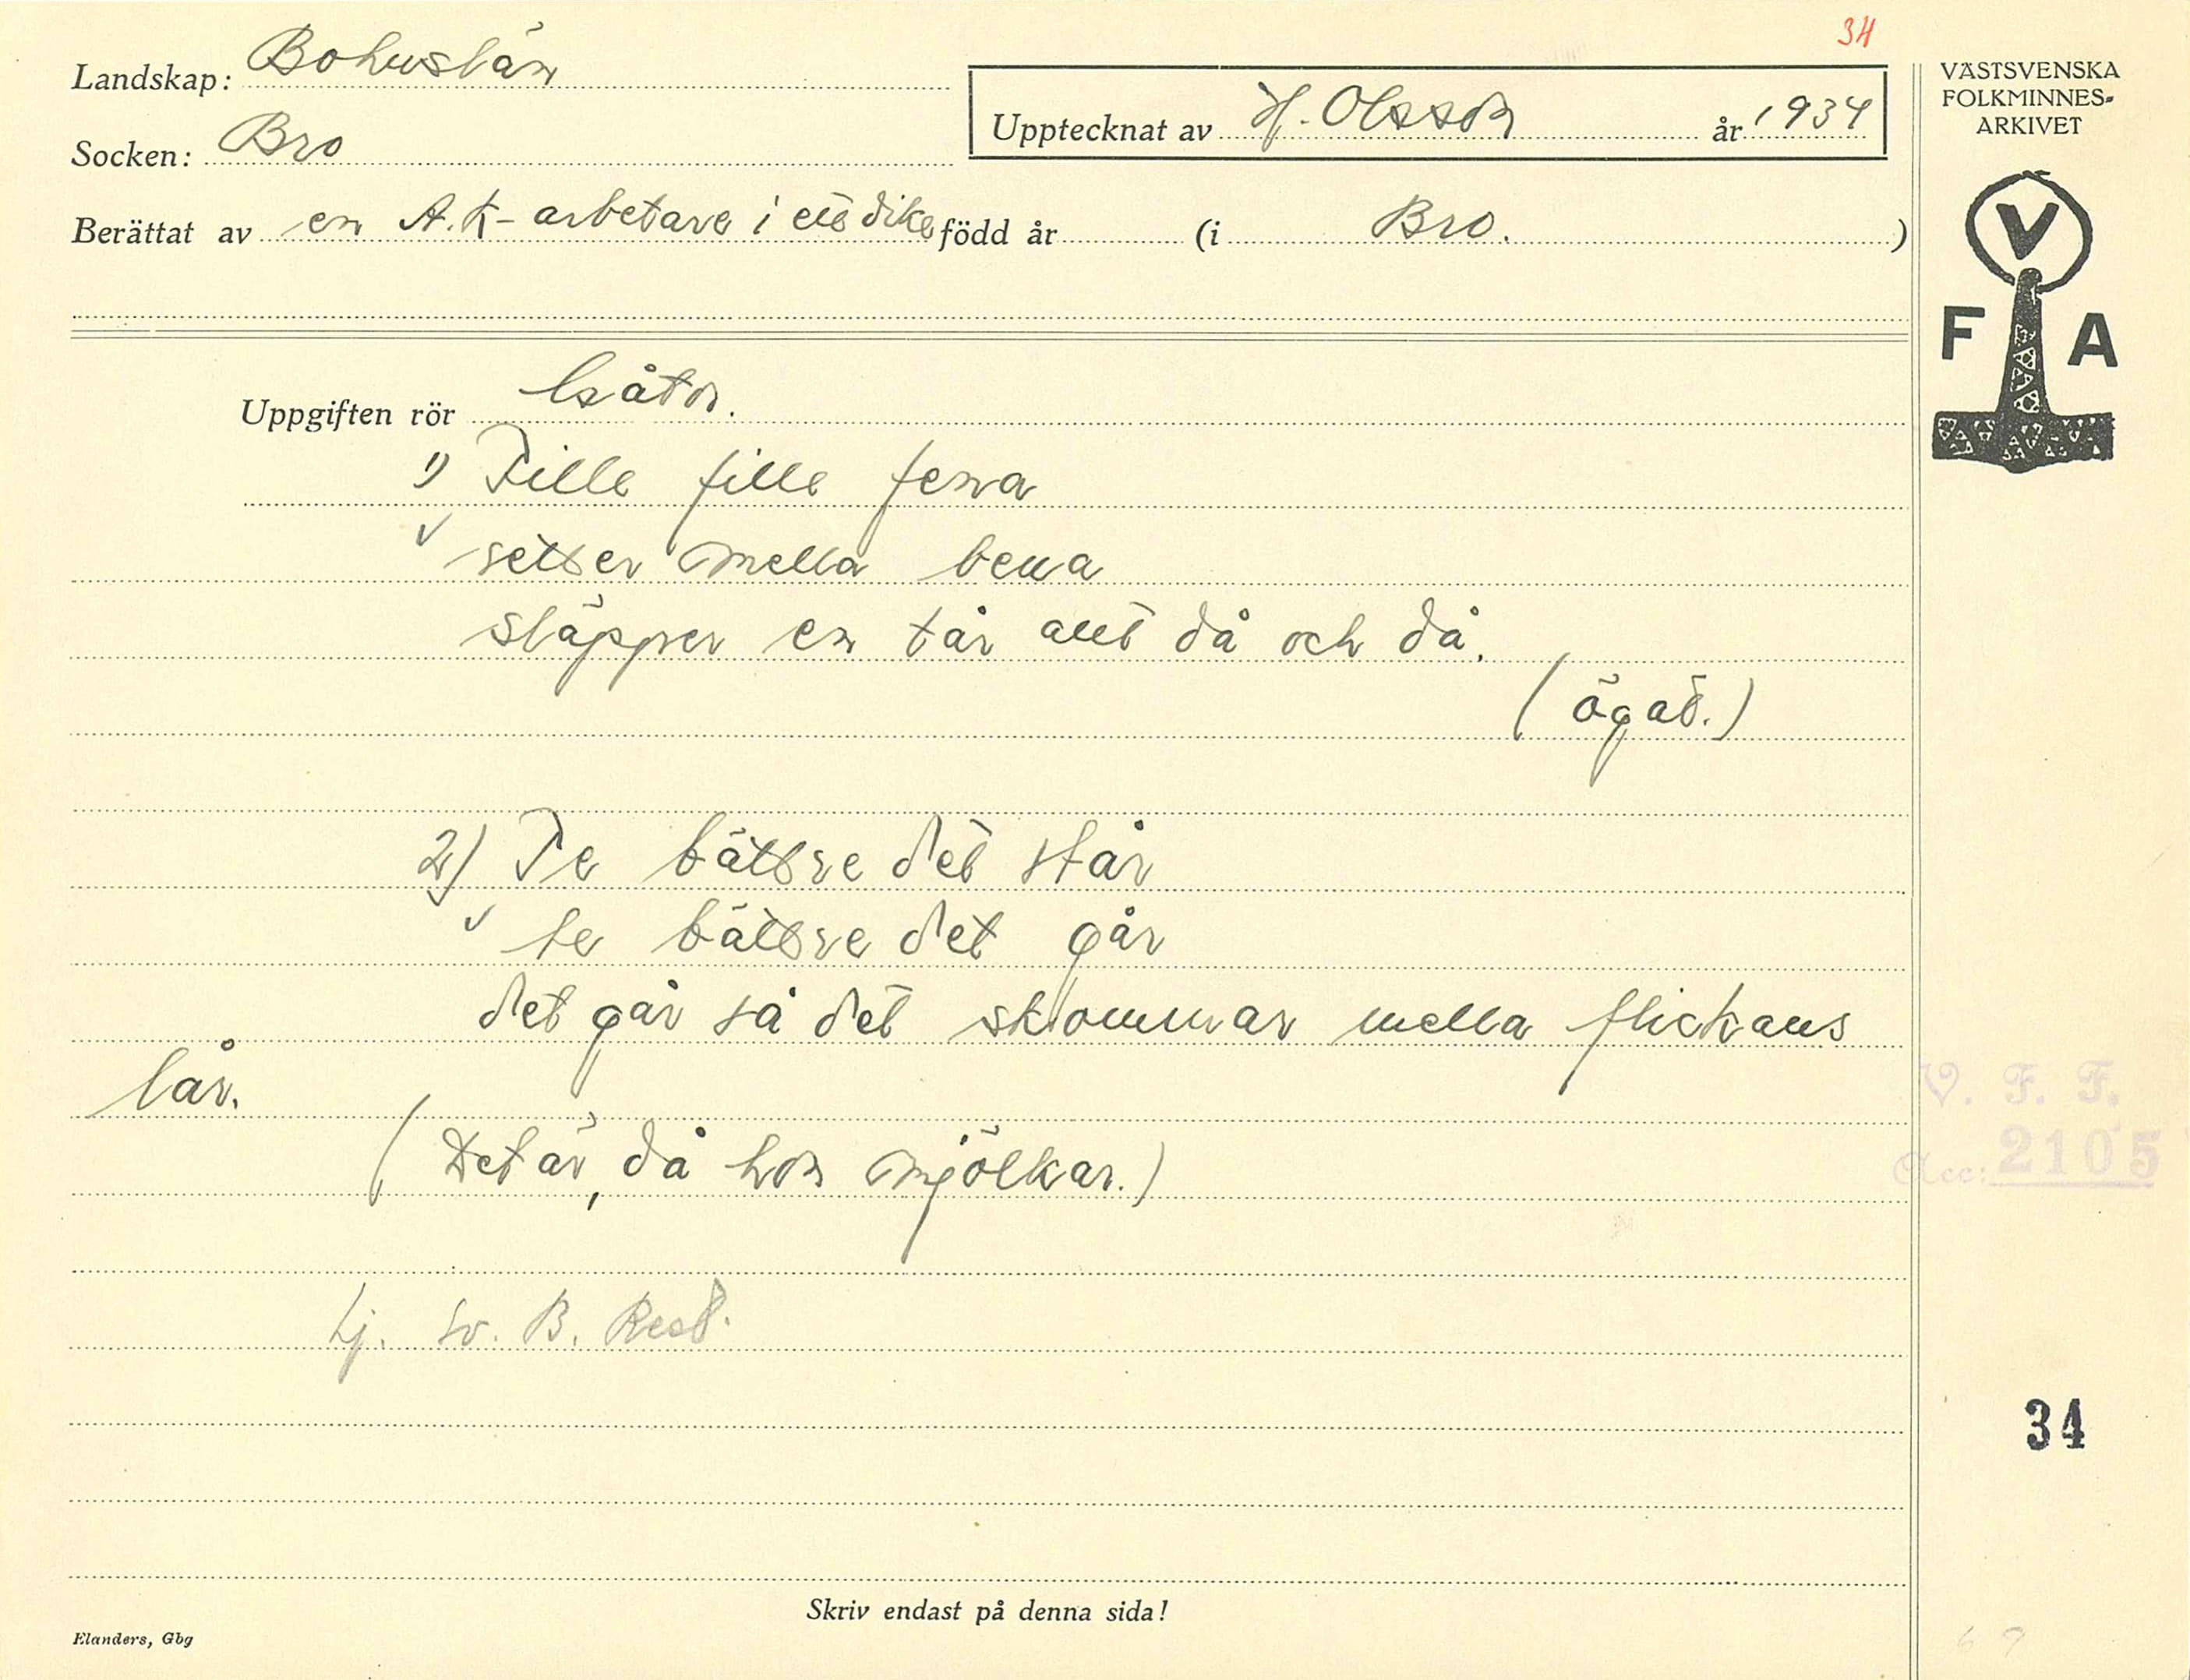 34
Landskap: Bohuslän
Socken: Bro
Upptecknat av H. Olsson år 1934
Berättat av en A.K-arbetare i ett dike född år (i Bro.)
Uppgiften rör Gåtor.
1) Fille fille fena
setter mella bena
släpper en tår att då och då.
(ögat.)
2) Te bättre det står
te bättre det går
det går så det skommar mella flickans
lår.
(Det är, då hon mjölkar.)
Lj. sv. B.
Skriv endast på denna sida!
Elanders, Gbg
VÄSTSVENSKA
FOLKMINNES-
ARKIVET
V
F A
V. F. F.
Acc: 2105
34
69